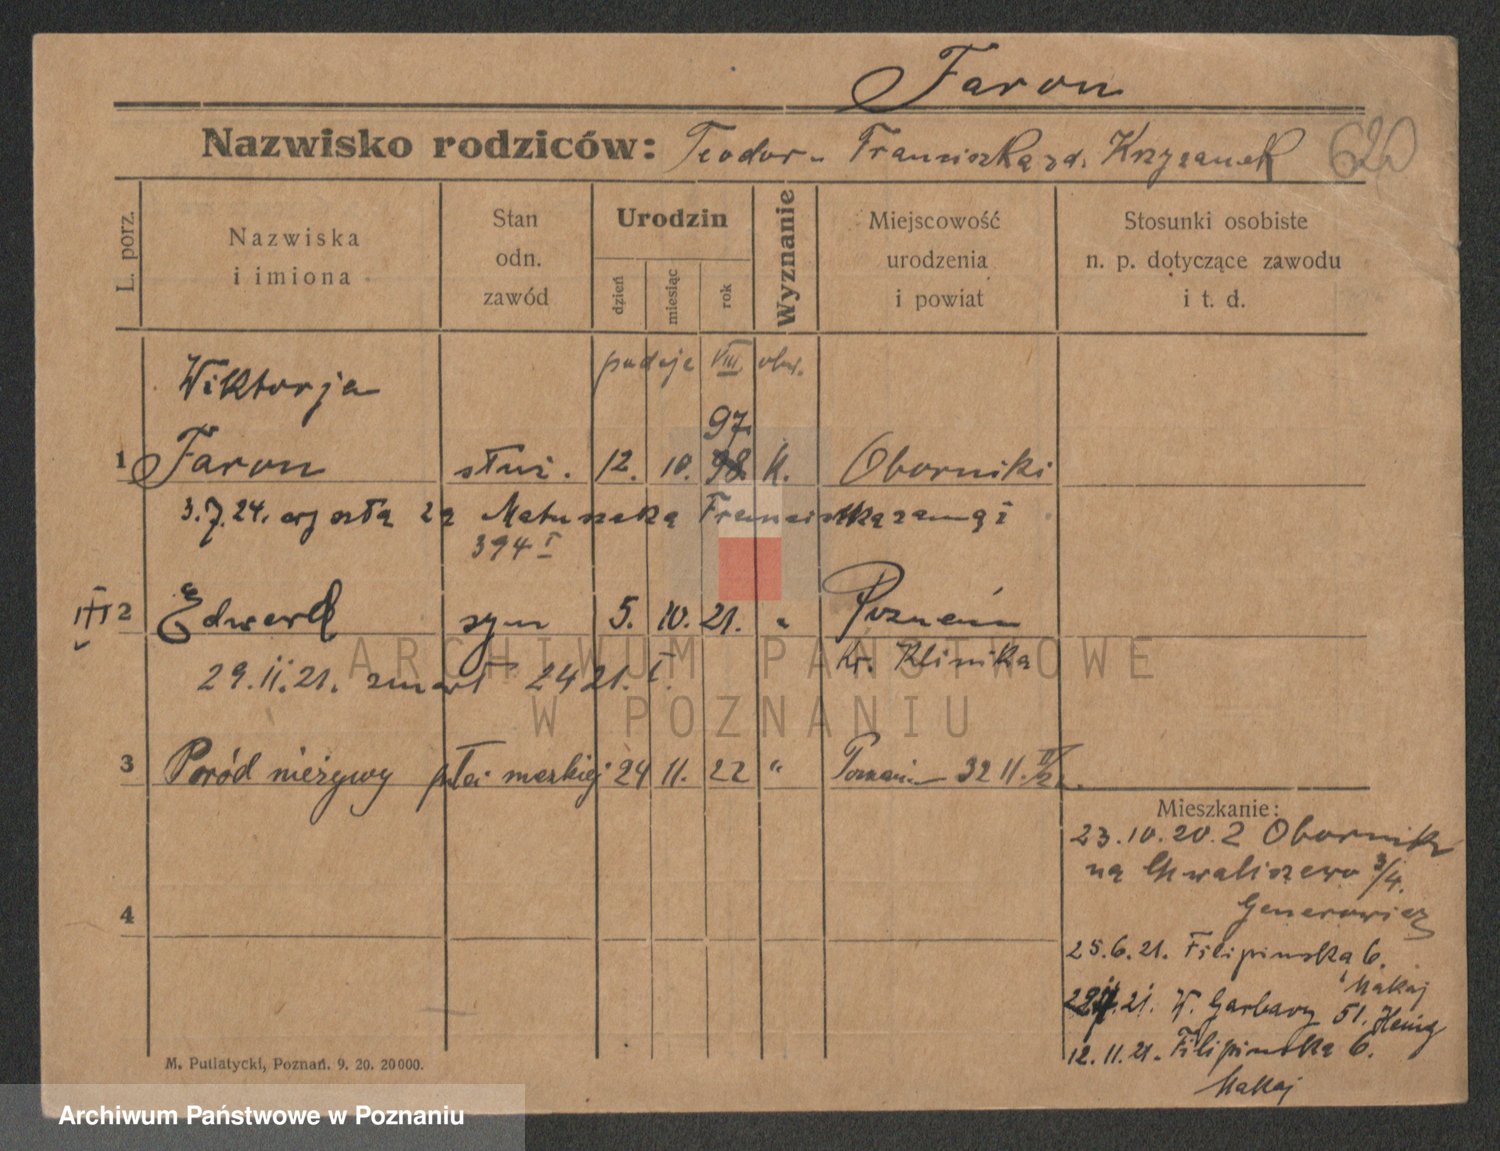 Faron
Nazwisko rodziców: Teodor Franciszka zd. Krzyżanek 620
L. porz.
Nazwiska
i imiona
Stan
odn.
zawód
Urodzin
dzień
miesiąc
rok
Wyznanie
Miejscowość
urodzenia
i powiat
Stosunki osobiste
n. p. dotyczące zawodu
i t. d.
podaje VIII
Wiktorja
97.
1 Faron służ. 12. 10. 98. k. Oborniki
3.7.24. wyszła za Matuszaka Franciszka
394 I
2 Edward syn 5. 10. 21. " Poznań
Kr. Klinika
29.11.21. zmarł 2421. I.
3 Poród nieżywy płci męzkiej 24 11. 22 " Poznań 3211.
Mieszkanie:
23.10.20. z Obornik
na Chwaliszewo 3/4.
4
25.6.21. Filipińska 6.
Makaj
21. W. Garbary 51.
12.11.21. Filipińska 6.
Makaj
M. Putiatycki, Poznań. 9. 20. 20000.
ARCHIWUM PAŃSTWOWE
W POZNANIU
Archiwum Państwowe w Poznaniu